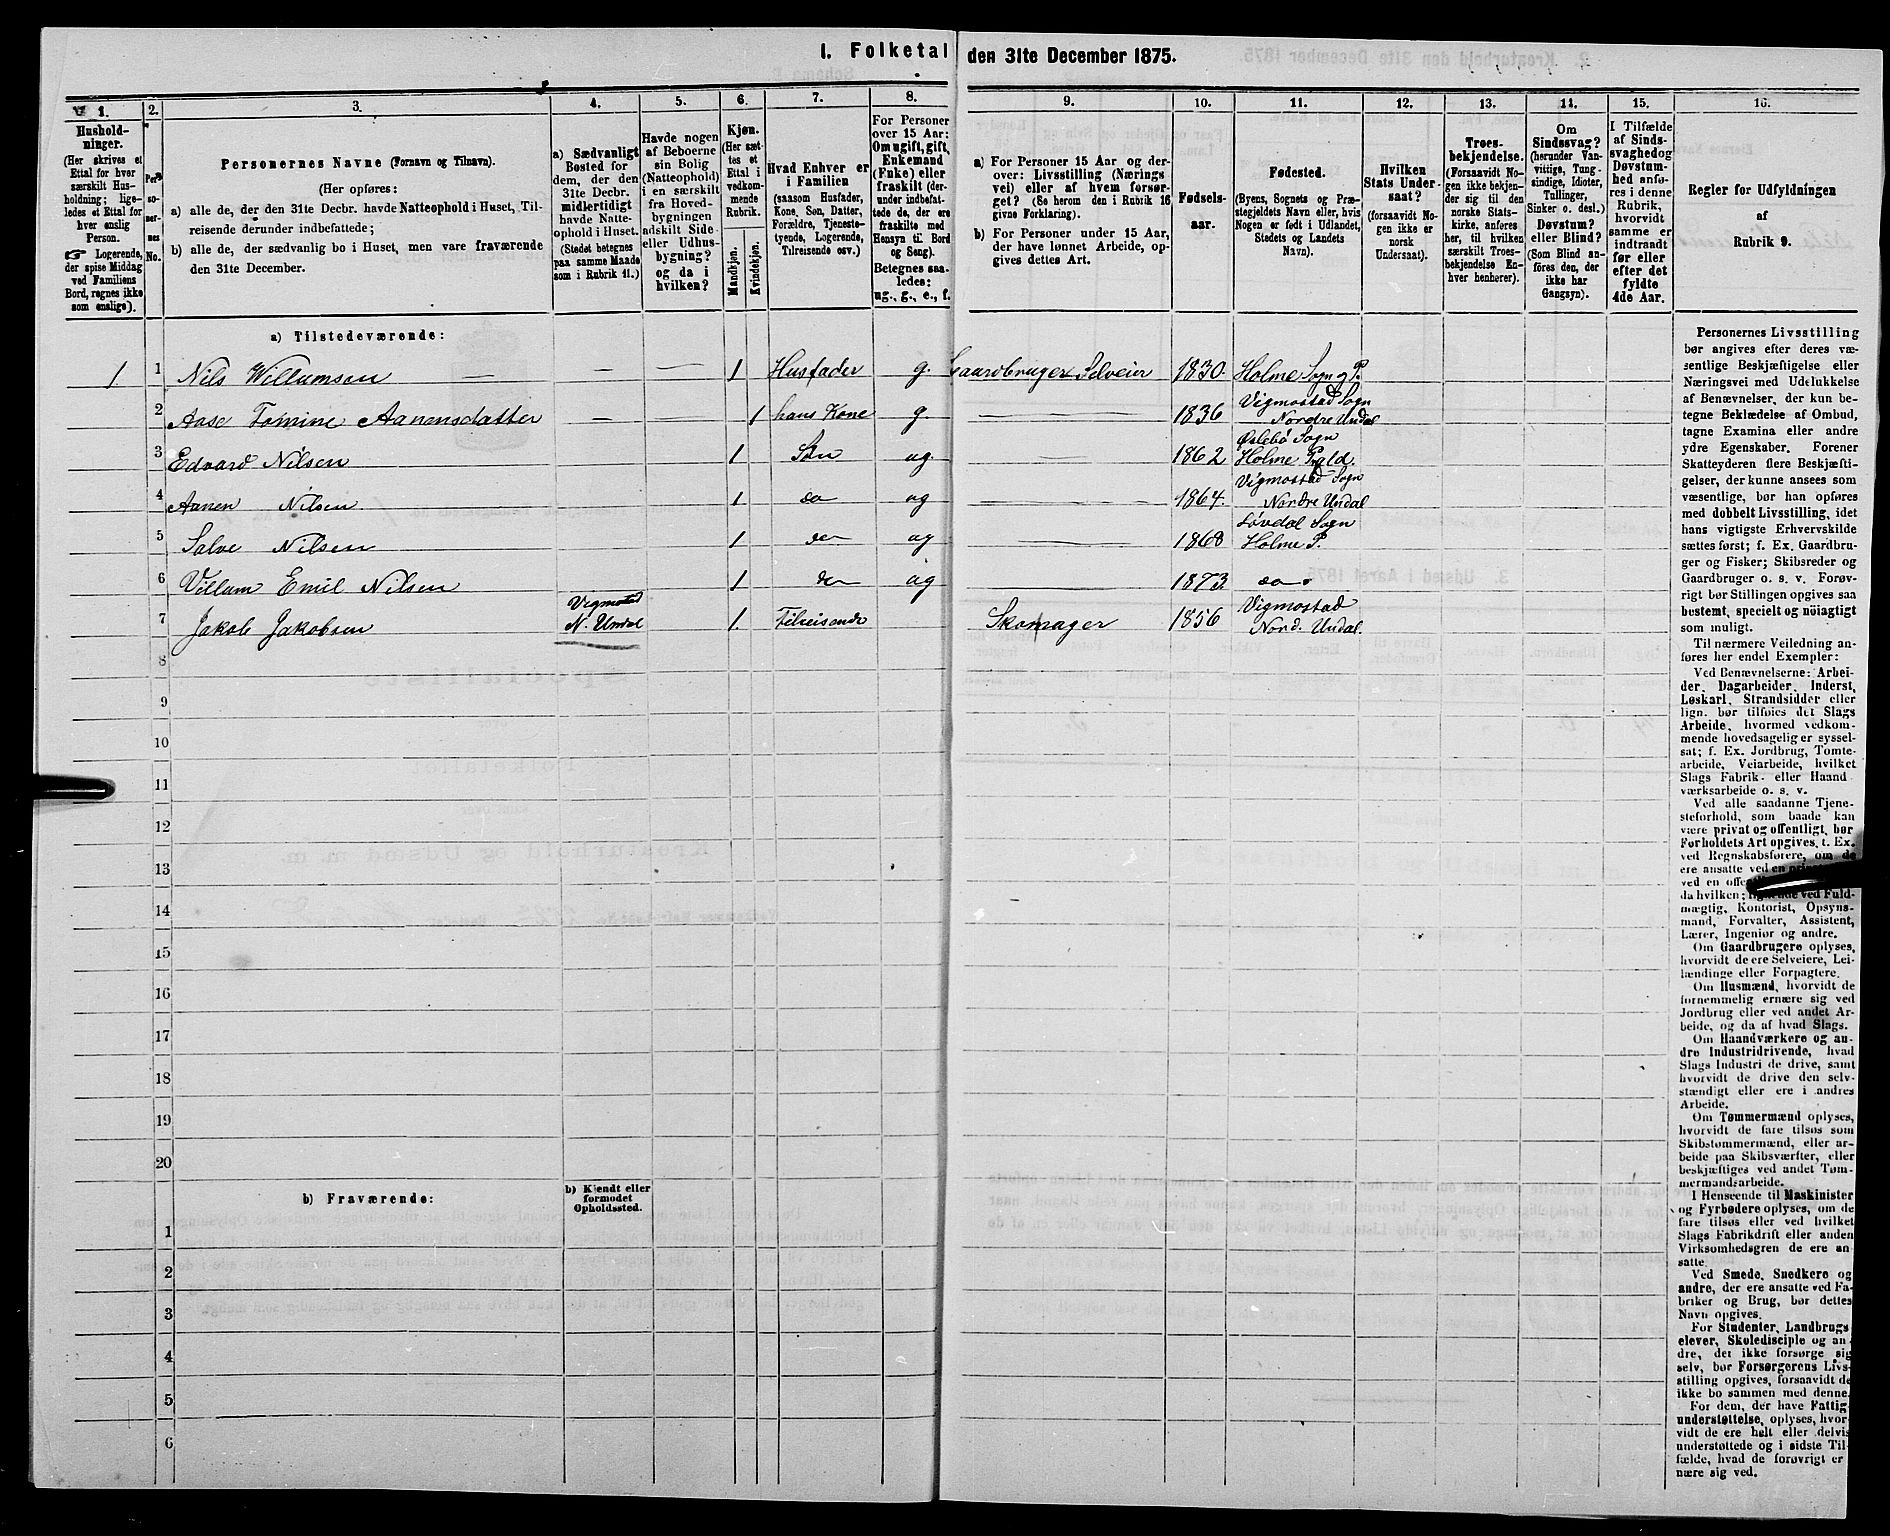 1. Folketal den 31te December 1875.
1.
Hushold-
ninger.
(Her skrives et
Ettal for hver
særskilt Hus-
holdning; lige-
ledes et Ettal for
hver enslig
Person.
☞ Logerende,
der spise Middag
ved Familiens
Bord, regnes ikke
som enslige).
2.
Per-
so-
ner-
nes
No.
3.
Personernes Navne (Fornavn og Tilnavn).
(Her opføres:
a) alle de, der den 31te Decbr. havde Natteophold i Huset, Til-
reisende derunder indbefattede;
b) alle de, der sædvanlig bo i Huset, men vare fraværende
den 31te December.
4.
a) Sædvanligt
Bosted for
dem, der den
31te Decbr.
midlertidigt
havde Natte-
ophold i Huset.
(Stedet betegnes
paa samme Maade
som i Rubrik 11.)
5.
Havde nogen
af Beboerne
sin Bolig
(Natteophold)
i en særskilt
fra Hoved-
bygningen
adskilt Side-
eller Udhus-
bygning?
og da i
hvilken?
6.
Kjøn.
(Her sæt-
tes et
Ettal i
vedkom-
mende
Rubrik.
Mandkjøn.
Kvindekjøn.
7.
Hvad Enhver er
i Familien
(saasom Husfader,
Kone, Søn, Datter,
Forældre, Tjeneste-
tyende, Logerende,
Tilreisende osv.)
8.
For Personer
over 15 Aar:
Om ugift, gift,
Enkemand
(Enke) eller
fraskilt (der-
under indbefat-
tede de, der ere
fraskilte med
Hensyn til Bord
og Seng).
Betegnes saa-
ledes:
ug., g., e., f.
9.
a) For Personer 15 Aar og der-
over: Livsstilling (Nærings-
vei) eller af hvem forsør-
get? (Se herom den i Rubrik 16
givne Forklaring).
b) For Personer under 15 Aar,
der have lønnet Arbeide, op-
gives dettes Art.
10.
Fødsels-
aar.
11.
Fødested.
(Byens, Sognets og Præ-
stegjeldets Navn eller, hvis
Nogen er født i Udlandet,
Stedets og Landets
Navn).
12.
Hvilken
Stats Under-
saat?
(forsaavidt No-
gen ikke er
norsk
Undersaat).
13.
Troes-
bekjendelse.
(Forsaavidt No-
gen ikke bekjen-
der sig til den
norske Stats-
kirke, anføres
her, til hvilken
særskilt Troes-
bekjendelse En-
hver henhører).
14.
Om
Sindssvag?
(herunder Van-
vittige, Tung-
sindige, Idioter,
Tullinger,
Sinker o. desl.)
Døvstum?
eller Blind?
(Som Blind an-
føres den, der
ikke har
Gangsyn).
15.
I Tilfælde
af Sinds-
svaghed og
Døvstum-
hed anfø-
res i denne
Rubrik,
hvorvidt
samme er
indtraadt
før eller
efter det
fyldte
4de Aar.
16.
Regler for Udfyldningen
af
Rubrik 9.
a) Tilstedeværende:
1 1 Nils Willumsen — — — 1 Husfader g. Gaardbruger Selveier 1830. Holme Sogn og P.
2 Aase Tomine Aanensdatter — — 1 hans Kone g — 1836 Vigmostad Sogn Nordre Undal
3 Edvard Nilsen 1 Søn ug. — 1862 Øslebø Sogn Holme Pgld.
4 Aanen Nilsen 1 do ug — 1864. Vigmostad Sogn Nordre Undal
5 Salve Nilsen 1 do ug — 1868 Løvdal Sogn Holme P.
6 Villum Emil Nilsen 1 do ug — 1873 do
7 Jakob Jakobsen Vigmostad N. Undal 1. Tilreisende Skomager 1856 Vigmostad Nord. Undal.
8
9
10
11
12
13
14
15
16
17
18
19
20
b) Fraværende:
b) Kjendt eller
formodet
Opholdssted.
1
2
3
4
5
6
Personernes Livsstilling
bør angives efter deres væ-
sentlige Beskjæftigelse eller
Næringsvei med Udelukkelse
af Benævnelser, der kun be-
tegne Beklædelse af Ombud,
tagne Examina eller andre
ydre Egenskaber. Forener
Skatteyderen flere Beskjæfti-
gelser, der kunne ansees som
væsentlige, bør han opføres
med dobbelt Livsstilling, idet
hans vigtigste Erhvervskilde
sættes først; f. Ex. Gaardbru-
ger og Fisker; Skibsreder og
Gaardbruger o. s. v. Forøv-
rigt bør Stillingen opgives saa
bestemt, specielt og nøiagtigt
som muligt.
Til nærmere Veiledning an-
føres her endel Exempler:
Ved Benævnelserne: Arbei-
der, Dagarbeider, Inderst,
Løskarl, Strandsidder eller
lign. bør tilføies det Slags
Arbeide, hvormed vedkom-
mende hovedsagelig er syssel-
sat; f. Ex. Jordbrug, Tomte-
arbeide, Veiarbeide, hvilket
Slags Fabrik- eller Haand-
værksarbeide o. s. v.
Ved alle saadanne Tjene-
steforhold, som baade kan
være privat og offentligt, bør
Forholdets Art opgives, t. Ex.
ved Regnskabsførere, om de
ere ansatte ved en
ved en
da hvilken; lignende ved Fuld-
mægtig, Kontorist, Opsyns-
mand, Forvalter, Assistent,
Lærer, Ingeniør og andre.
Om Gaardbrugere oplyses,
hvorvidt de ere Selveiere, Lei-
lændinge eller Forpagtere.
Om Husmænd, hvorvidt de
fornemmelig ernære sig ved
Jordbrug eller ved andet Ar-
beide, og da af hvad Slags.
Om Haandværkere og an-
dre Industridrivende, hvad
Slags Industri de drive, samt
hvorvidt de drive den selv-
stændigt eller ere i andres
Arbeide.
Om Tømmermænd oplyses,
hvorvidt de fare tilsøs som
Skibstømmermænd, eller ar-
beide paa Skibsværfter, eller
beskjæftiges ved andet Tøm-
mermandsarbeide.
I Henseende til Maskinister
og Fyrbødere oplyses, om de
fare tilsøs eller ved hvilket
Slags Fabrikdrift eller anden
Virksomhedsgren de ere an-
satte.
Ved Smede, Snedkere og
andre, der ere ansatte ved Fa-
briker og Brug, bør dettes
Navn opgives.
For Studenter, Landbrugs-
elever, Skoledisciple og an-
dre, der ikke forsørge sig
selv, bør Forsørgerens Livs-
stilling opgives, forsaavidt de
ikke bo sammen med denne.
For dem, der have Fattig-
understøttelse, oplyses, hvor-
vidt de ere helt eller delvis
understøttede og i sidste Til-
fælde, hvad de forøvrigt er-
nære sig ved.